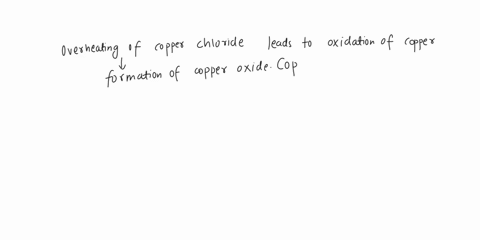 Overheating of copper chloride leads to oxidation of copper
↓
formation of copper oxide. Cop